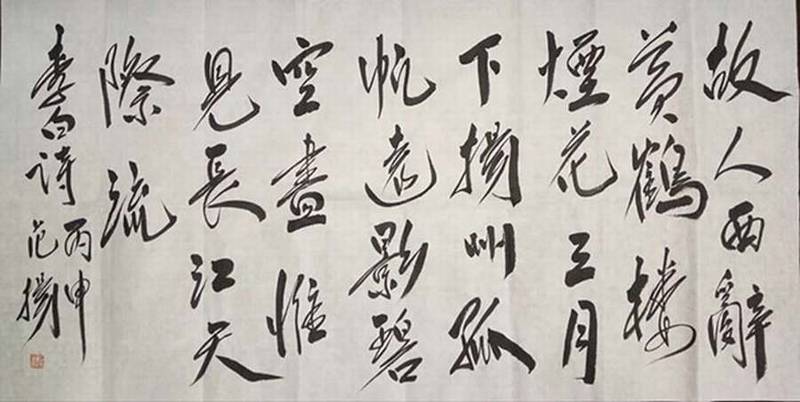 故人西辭
黃鶴樓
煙花三月
下揚州孤
帆遠影碧
空盡惟
見長江天
際流
李白诗
丙申
范揚